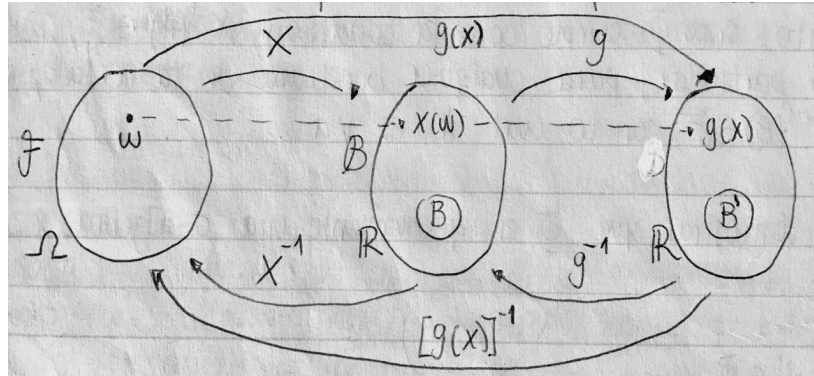 g(X)
X
g
ω
X(ω)
g(X)
F
B
B
B'
Ω
ℝ
ℝ
X⁻¹
g⁻¹
[g(X)]⁻¹